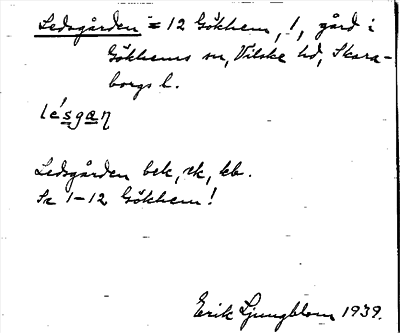 Ledsgården = 12 Gökhem, !, gård i
Gökhems sn, Vilske hd, Skara-
borgs l.
lésgaη
Ledsgården bek, rk, kb.
Se 1-12 Gökhem!
Erik Ljungblom 1939.